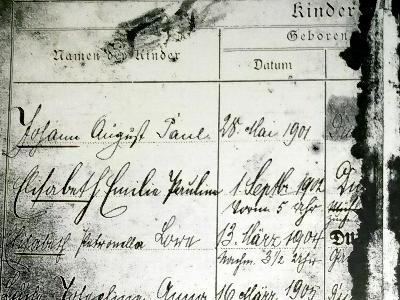 Kinder
Geboren
Namen der Kinder
Datum
Johann August Paul 28. Mai 1901
Elisabeth Emilie Pauline 1. Septbr 1902
Vorm 5 Uhr
Elisabeth Petronella Lore 13. März 1904
Nachm. 3 1/2 Uhr
Anna 16 März 1905